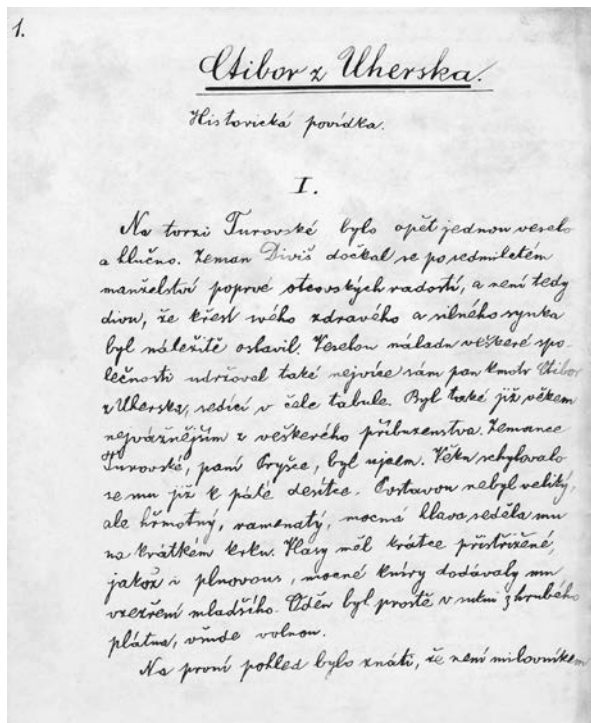 1.
Ctibor z Uherska.
Historická povídka.
I.
Na tvrzi Turovské bylo opět jednou veselo
a hlučno. Zeman Diviš dočkal se po sedmiletém
manželství poprvé otcovských radostí, a není tedy
divu, že křest svého zdravého a silného synka
byl náležitě oslavil. Veselou náladu veškeré spo-
lečnosti udržoval také nejvíce sám pan kmotr Ctibor
z Uherska, sedící v čele tabule. Byl také již věkem
nejvážnějším z veškerého příbuzenstva. Zemance
Turovské, paní Oryšce, byl ujcem. Věku schylovalo
se mu již k páté desítce. Postavou nebyl veliký,
ale hřmotný, ramenatý, mocná hlava seděla mu
na krátkém krku. Vlasy měl krátce přistřižené,
jakož i plnovous, mocné kníry dodávaly mu
vzezření mladšího. Oděn byl prostě v sukni z hrubého
plátna, všude volnou.
Na první pohled bylo znáti, že není milovníkem